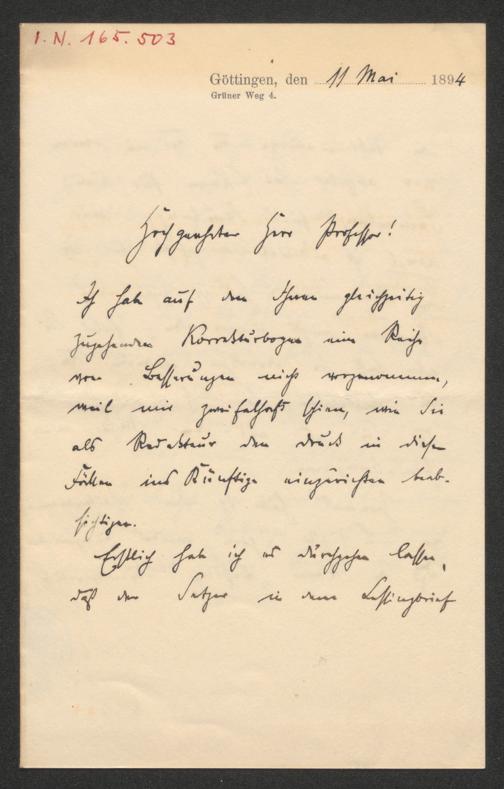 I. N. 165.503
Göttingen, den 11 Mai 1894
Grüner Weg 4.
Hochgeehrter Herr Professor!
Ich habe auf den Ihnen gleichzeitig
zugehenden Korrekturbogen eine Reihe
von Besserungen nicht vorgenommen,
weil mir zweifelhaft schien, wie Sie
als Redakteur den Druck in diesen
Fällen ins Künftige einzurichten beab-
sichtigen.
Erstlich habe ich es durchgehen lassen,
daß der Setzer in dem Lessingbrief